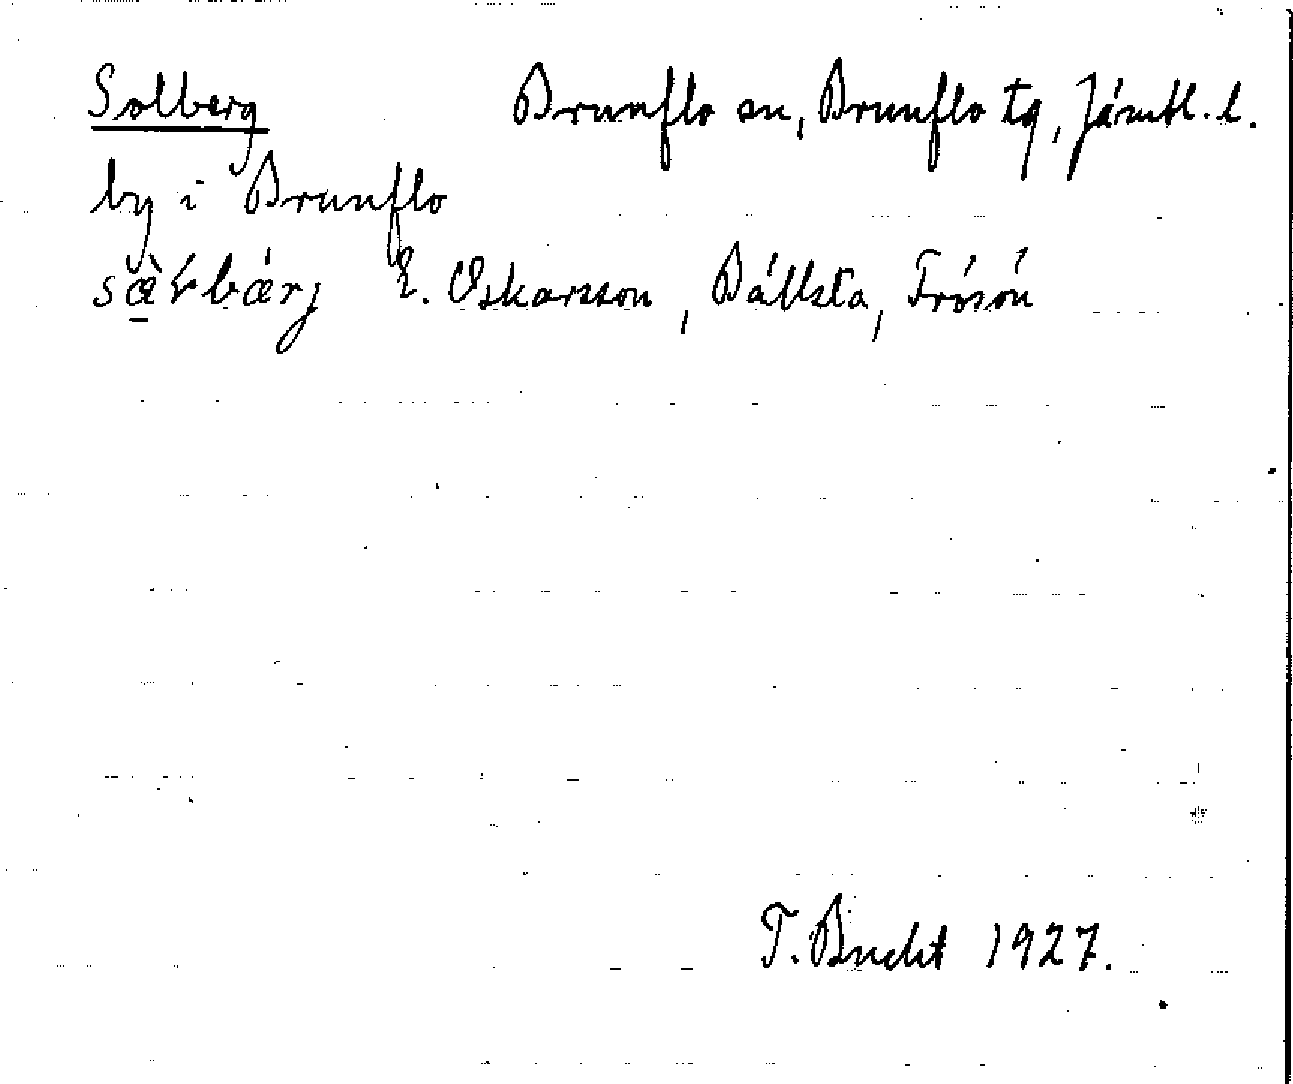 Solberg Brunflo sn, Brunflo tg, Jämtl. l.
by i Brunflo
E. Oskarsson, Bällsta, Frösön
T. Bucht 1927.